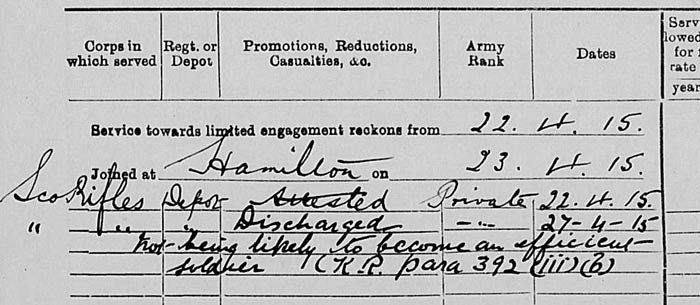 Corps in which served Regt. or Depot Promotions, Reductions, Casualties, &c. Army Rank Dates Serv
lowed
for
rate
year
Service towards limited engagement reckons from 22. 4. 15.
Joined at Hamilton on 23. 4. 15.
Sco Rifles Depot Attested Private 22. 4. 15.
" " " Discharged —"— 27-4-15
Not being likely to become an efficient
soldier (K.R. para 392 (iii)(b)